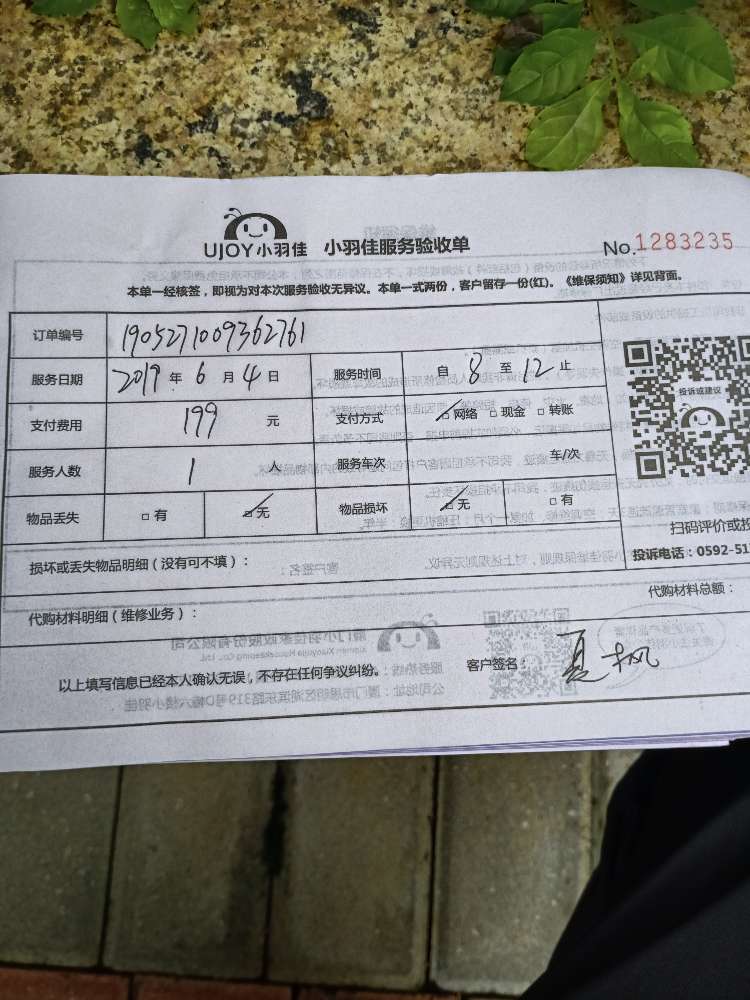 UJOY小羽佳 小羽佳服务验收单 No.1283235
本单一经核签，即视为对本次服务验收无异议。本单一式两份，客户留存一份(红)。《维保须知》详见背面。
订单编号 1905271009362761
服务日期 2019 年 6 月 4 日 服务时间 自 8 至 12 止
支付费用 199 元 支付方式 网络 □ 现金 □ 转账
投诉或建议
服务人数 1 人 服务车次 车/次
物品丢失 □ 有 无 物品损坏 无 □ 有
扫码评价或投
损坏或丢失物品明细（没有可不填）：
投诉电话：0592-51
代购材料明细（维修业务）： 代购材料总额：
以上填写信息已经本人确认无误，不存在任何争议纠纷。 客户签名： 夏枫